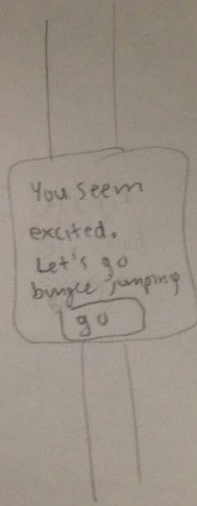 You seem
excited.
Let's go
bungee jumping
go